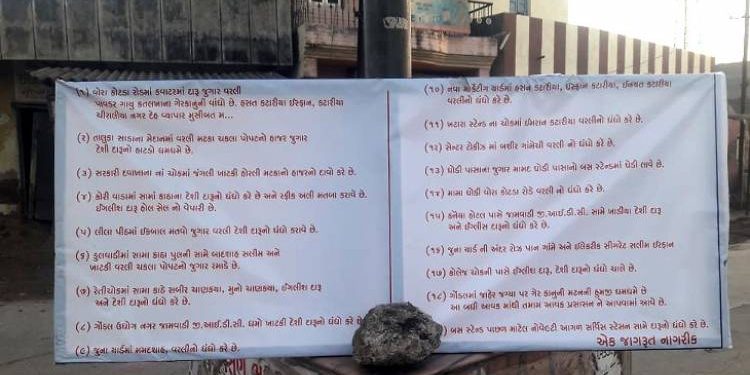 (૧) વોરા કોટડા રોડમાં કવાટરમાં દારૂ જુગાર વરલી
પાવકર ગાયુ કતલખાના ગેરકાનુની ધંધો છે. હસત કટારીયા ઈરફાન, કટારીયા
ચીરાલીયા નગર દેહ વ્યાપાર મુસીબત મ...
(૨) તાલુકા સાડાના મેદાનમાં વરલી મટકા ચકલા પોપટનો હાજર જુગાર
દેશી દારૂનો હાટડો ધમધમે છે.
(૩) સરકારી દવાખાના નાં ચોકમાં જંગલી ખાટકી કોરલી મટકાનો હાજરનો દાવો કરે છે.
(૪) કોરી વાડામાં સામા કાઠાના દેશી દારૂનો ધંધો કરે છે અને રફીક અલી મતબા કરાવે છે.
ઈંગલીશ દારૂ હોલ સેલ નો વેપારી છે.
(૫) લીલા પીઠમાં ઈકબાલ મતવો જુગાર વરલી દેશી દારૂનો ધંધો કરાવે છે.
(૬) ફુલવાડીમાં સામા કાઠા પુલની સામે બાદશાહ સલીમ અને
ખાટકી વરલી ચકલા પોપટનો જુગાર રમાડે છે.
(૭) રેતીચોકમાં સામા કાઠે સબીર ચાણકયા, મુનો ચાણકયા, ઈંગલીશ દારૂ
અને દેશી દારૂનો ધંધો કરે છે.
(૮) ગોંડલ ઉધોગ નગર જામવાડી જી.આઈ.ડી.સી. ધમો ખાટકી દેશી દારૂનો ધંધો કરે છે
(૯) જુના યાર્ડમાં મમદશાહ, વરલીનો ધંધો કરે છે.
(૧૦) નવા માર્કેટીંગ યાર્ડમાં હસન કટારીયા, ઈરફાન કટારીયા, ઈનાયત કટારીયા
વરલીનો ધંધો કરે છે.
(૧૧) ખટારા સ્ટેન્ડ ના ચોકમાં ઈમરાન કટારીયા વરલીનો ધંધો કરે છે.
(૧૨) સેન્ટર ટોકીઝ માં બશીર ગામેચી વરલી નો ધંધો કરે છે.
(૧૩) ઘોડી પાસાના જુગાર મામદ ઘોડી પાસાનો બસ સ્ટેન્ડમાં ઘોડી લાવે છે.
(૧૪) મામા ઘોડી વોરા કોટડા રોડે વરલી નો ધંધો કરે છે.
(૧૫) કનૈયા હોટલ પાસે જામવાડી જી.આઈ.ડી.સી. સામે ખાડીયા દેશી દારૂ
અને ઈંગ્લીસ દારૂનો ધંધો કરે છે.
(૧૬) જુના યાર્ડ ની અંદર રોઝ પાન ગામે અને ઈલેકરીક સીગરેટ સલીમ ઈરફાન
(૧૭) કોલેજ ચોકની પાસે ઈંગ્લીશ દારૂ, દેશી દારૂનો ધંધો ચાલે છે.
(૧૮) ગોંડલમાં જાહેર જગ્યા પર ગેર કાનુની મટનની હુમજી ધમધમે છે
આ બધી આવક માંથી તમામ આવક પ્રસાસન ને આપવામાં આવે છે.
બસ સ્ટેન્ડ પાછળ પાટેલ નોવેલ્ટી આગળ સર્વિસ સ્ટેસન સામે દારૂનો ધંધો કરે છે.
એક જાગરૂત નાગરીક